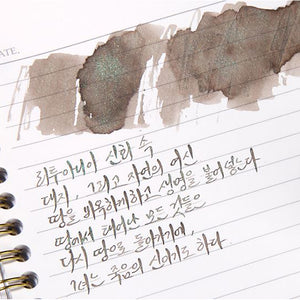 DATE.
리투아니아 신화 속
대지, 그리고 자연의 여신
땅을 비옥하게하고 생명을 불어넣는다
땅에서 태어난 모든 것들은
다시 땅으로 돌아가기에,
그녀는 죽음의 신이기도 하다